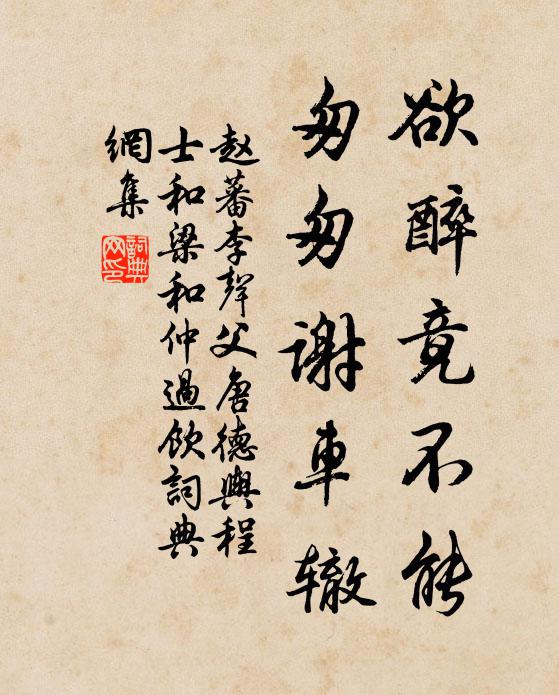 欲醉竟不能
匆匆謝車辙
赵蕃李聲父唐德輿程
士和梁和仲過飲詞典
網集
詞典
网印